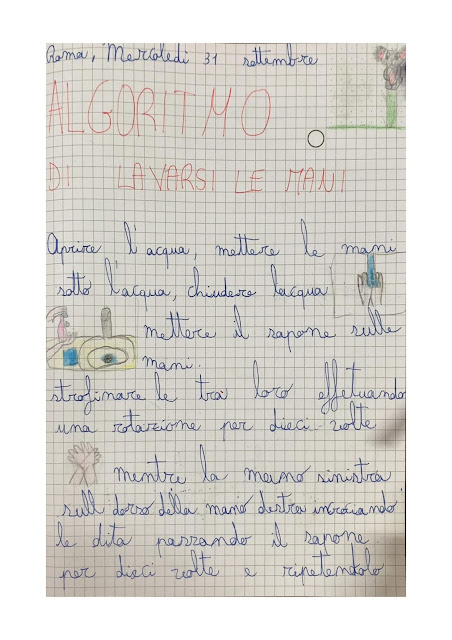 Roma, Mercoledi 31 settembre
ALGORITMO
DI LAVARSI LE MANI
Aprire l'acqua, mettere le mani
sotto l'acqua, chiudere lacqua
mettere il sapone sulle
mani.
strofinare le tra loro effetuando
una rotazione per dieci volte
mentre la mano sinistra
sull dorso della mano destra incrociando
le dita passando il sapone
per dieci volte e ripetendolo